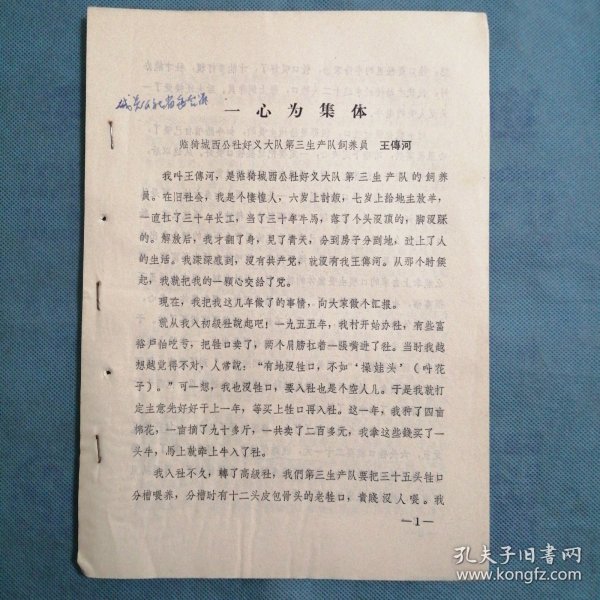 一心为集体
临猗城西公社好义大队第三生产队飼养員 王傳河
我叫王傳河，是临猗城西公社好义大队第三生产队的飼养
員。在旧社会，我是个悽惶人，六岁上討飯，七岁上給地主放羊，
一直扛了三十年长工，当了三十年牛馬，落了个头沒頂的，脚沒踩
的。解放后，我才翻了身，見了青天，分到房子分到地，过上了人
的生活。我深深感到，沒有共产党，就沒有我王傳河。从那个时候
起，我就把我的一顆心交給了党。
現在，我把我这几年做了的事情，向大家做个汇报。
就从我入初級社說起吧！一九五五年，我村开始办社，有些富
裕户怕吃亏，把牲口卖了，两个肩膀扛着一張嘴进了社。当时我越
想越觉得不对，人常說：“有地沒牲口，不如‘操娃头’（叫花
子）。”可一想，我也沒牲口，要入社也是个空人儿。于是我就打
定主意先好好干上一年，等买上牲口再入社。这一年，我种了四亩
棉花，一亩摘了九十多斤，一共卖了二百多元，我拿这些錢买了一
头牛，馬上就牵上牛入了社。
我入社不久，轉了高級社，我們第三生产队要把三十五头牲口
分槽喂养，分槽时有十二头皮包骨头的老牲口，賣賤沒人喂。我
—1—
孔夫子旧书网
www.kongfz.com